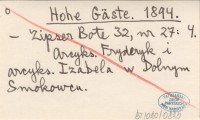 Hohe Gäste. 1894.
- Zipser Bote 32, nr 27: 4.
Arcyks. Fryderyk i
arcyks. Izabela w Dolnym
Smokowcu.